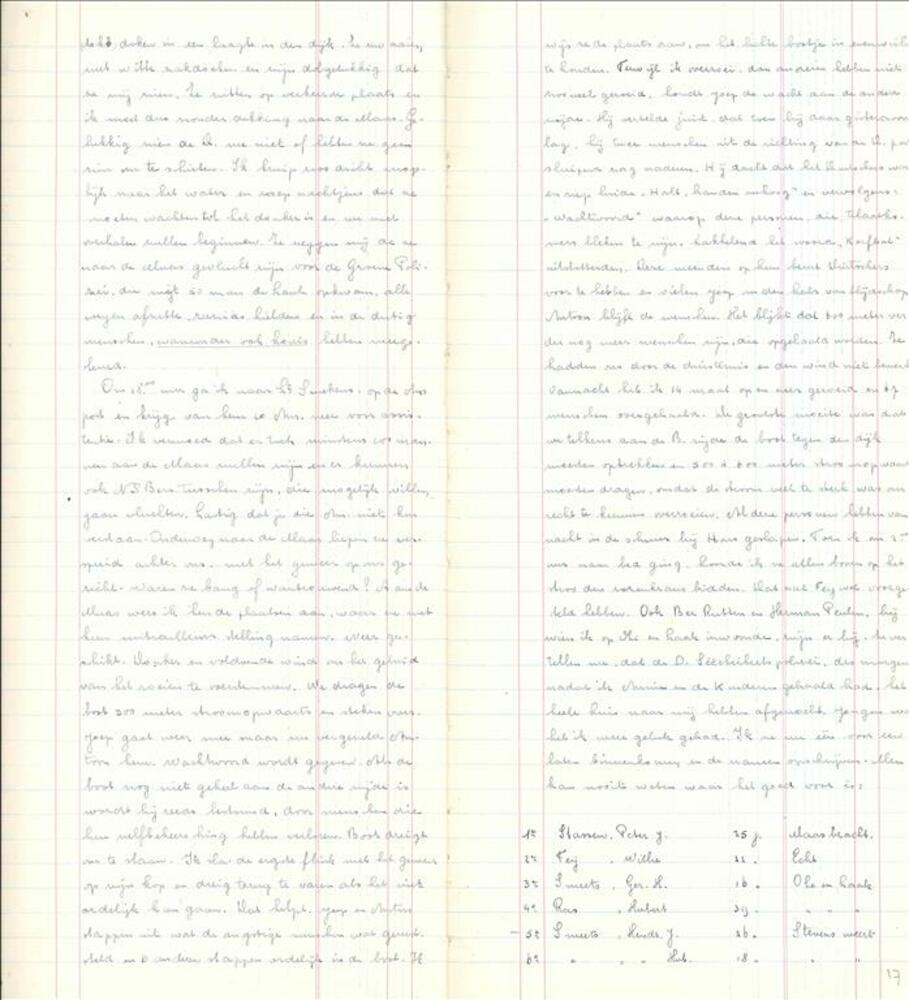 duiken in een laagte in den dijk. Ze zwaaien
met witte zakdoeken en zijn dolgelukkig dat
ze mij zien. Ze zitten op verkeerde plaats en
ik moet dus zonder dekking naar de Maas. Ge-
lukkig zien de D. me niet of hebben ze geen
zin om te schieten. Ik kruip zoo dicht moge-
lijk naar het water en roep zachtjens dat ze
moeten wachten tot het donker is en we met
overhalen zullen beginnen. Ze zeggen mij dat ze
naar de Maas gevlucht zijn voor de Groene Poli-
zei, die met 50 man de hoek opkwam, alle
wegen afzette, razzias hielden en in de dertig
menschen, waaronder ook Louis hebben meege-
nomen.
Om 18.00 uur ga ik naar Lt Smekens op de Am.
post en krijg van hem 10 Am. mee voor assis-
tentie. Ik vermoed dat er toch minstens 100 man-
nen aan de Maas zullen zijn en er kunnen
ook NSBers tusschen zijn, die mogelijk willen
gaan vluchten. Lastig dat je die Am. niet kan
verstaan. Onderweg naar de Maas liepen ze ver-
spreid achter ons, met het geweer op ons ge-
richt. Waren ze bang of wantrouwend? Aan de
Maas wees ik hen de plaatsen aan, waar ze met
hun mitrailleurs stelling namen. Weer ge-
schikt. Donker en voldoende wind om het geluid
van het roeien te overstemmen. We dragen de
boot 300 meter stroomopwaarts en steken over.
Joep gaat weer mee maar nu vergezeld An-
toon hem. Wachtwoord wordt gegeven. Als de
boot nog niet geheel aan de andere zijde is
wordt hij reeds bestormd, door menschen die
hun zelfbeheersching hebben verloren. Boot dreigt
om te slaan. Ik sla de ergste flink met het geweer
op zijn kop en dreig terug te varen als het niet
ordelijk kan gaan. Dat helpt. Joep en Antoon
stappen uit wat de angstige menschen wat gerust-
steld en 6 anderen stappen ordelijk in de boot. Ik
wijs ze de plaats aan, om het lichte bootje in evenwicht
te houden. Terwijl ik overroei, dan anderen hebben niet
zooveel geroeid, houdt Joep de wacht aan de andere
zijde. Hij vertelde juist, dat toen hij daar gisteravond
lag, hij twee menschen uit de richting van de D. post
sluipens zag naderen. Hij dacht dat het Duitschers waren
en riep luide "Halt, handen omhoog" en vervolgens:
"Wachtwoord" waarop deze personen, die Blaricks-
mers bleken te zijn, hakkelend het woord "Korfbal"
uitstotterden. Deze meenden op hun beurt Duitschers
voor te hebben en vielen Joep om den hals van blijdschap
Antoon blijft de menschen. Het blijkt dat 600 meter ver
der nog meer menschen zijn, die opgehaald worden. Ze
hadden ons door de duisternis en den wind niet bemerkt
Vannacht heb ik 14 maal op en neer geroeid en 67
menschen overgehaald. De grootste moeite was dat
we telkens aan de B. zijde de boot tegen den dijk
moesten optrekken en 500 à 600 meter stroomopwaarts
moesten dragen, omdat de stroom veel te sterk was om
recht te kunnen overroeien. Al deze personen hebben van
nacht in de schuur bij Hans geslapen. Toen ik om 2.00
uur naar bed ging, hoorde ik ze allen boven op het
stroo den rozenkrans bidden. Dat zal Fey wel voorge-
steld hebben. Ook Ber Rutten en Herman Peulen, bij
wien ik op Ohé en Laak inwoonde, zijn er bij. Ze ver
tellen me, dat de D. Sicherheitspolizei, des morgens
nadat ik Annie en de kinderen gehaald had, het
heele huis naar mij hebben afgezocht. Jongen wat
heb ik weer geluk gehad. Ik zal nu één voor een
laten binnenkomen en de namen opschrijven. Men
kan nooit weten waar het goed voor is:
1e Stassen, Peter J. 25 j. Maasbracht.
2e Fey, Willie 22 " Echt
3e Smeets, Ger. H. 16 " Ohe en Laak
4e Ras, Hubert 39 " " " "
5e Smeets, Hendr. J. 26 " Stevensweert
6e " " " Hub. 18 " " "
17